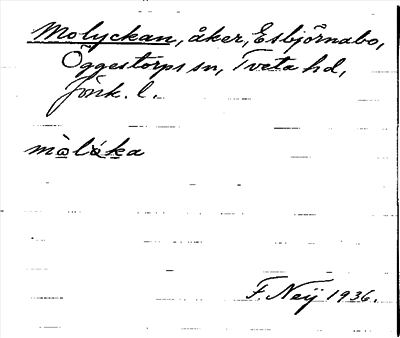 Molyckan, åker, Esbjörnabo,
Öggestorps sn, Tveta hd,
Jönk. l.
F. Neij 1936.